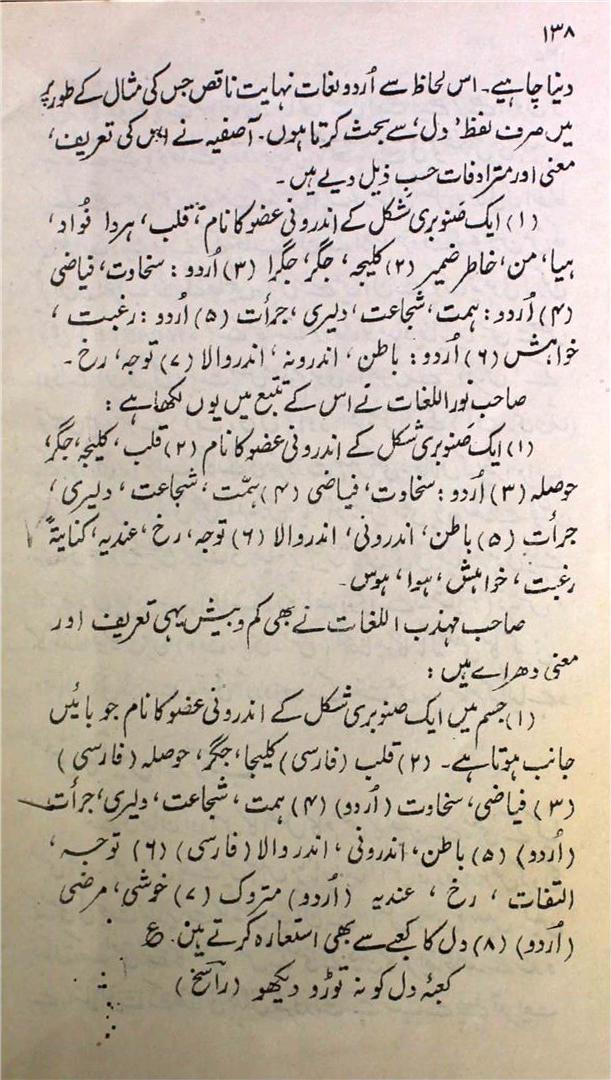 ۱۳۸
دینا چاہیے۔ اس لحاظ سے اُردو لغات نہایت ناقص جس کی مثال کے طور پر
میں صرف لفظ 'دل' سے بحث کرتا ہوں۔ آصفیہ نے اس کی تعریف،
معنی اور مترادفات حسبِ ذیل دیے ہیں۔
(۱) ایک صَنوبری شکل کے اندرونی عضو کا نام، قلب، ہردا فُواد،
ہیا، من، خاطر ضمیر (۲) کلیجہ، جگر، جگرا (۳) اُردو: سخاوت، فیاضی
(۴) اُردو: ہمت، شجاعت، دلیری، جرأت (۵) اُردو: رغبت،
خواہش (۶) اُردو: باطن، اندرونہ، اندر والا (۷) توجہ، رخ۔
صاحب نور اللغات نے اس کے تتبع میں یوں لکھا ہے:
(۱) ایک صَنوبری شکل کے اندرونی عضو کا نام (۲) قلب، کلیجہ، جگر،
حوصلہ (۳) اُردو: سخاوت، فیاضی (۴) ہمّت، شجاعت، دلیری،
جرأت (۵) باطن، اندرونی، اندر والا (۶) توجہ، رخ، عندیہ، کنایتہً
رغبت، خواہش، ہوا، ہوس۔
صاحب مہذب اللغات نے بھی کم و بیش یہی تعریف اور
معنی دھراے ہیں:
(۱) جسم میں ایک صنوبری شکل کے اندرونی عضو کا نام جو بائیں
جانب ہوتا ہے۔ (۲) قلب (فارسی) کلیجا، جگر، حوصلہ (فارسی)
(۳) فیاضی، سخاوت (اُردو) (۴) ہمت، شجاعت، دلیری، جرأت
(اُردو) (۵) باطن، اندرونی، اندر والا (فارسی) (۶) توجہ،
التفات، رخ، عندیہ (اُردو) متروک (۷) خوشی، مرضی
(اُردو) (۸) دل کا کعبے سے بھی استعارہ کرتے ہین۔ ع
کعبۂ دل کو نہ توڑو دیکھو (راسخ)